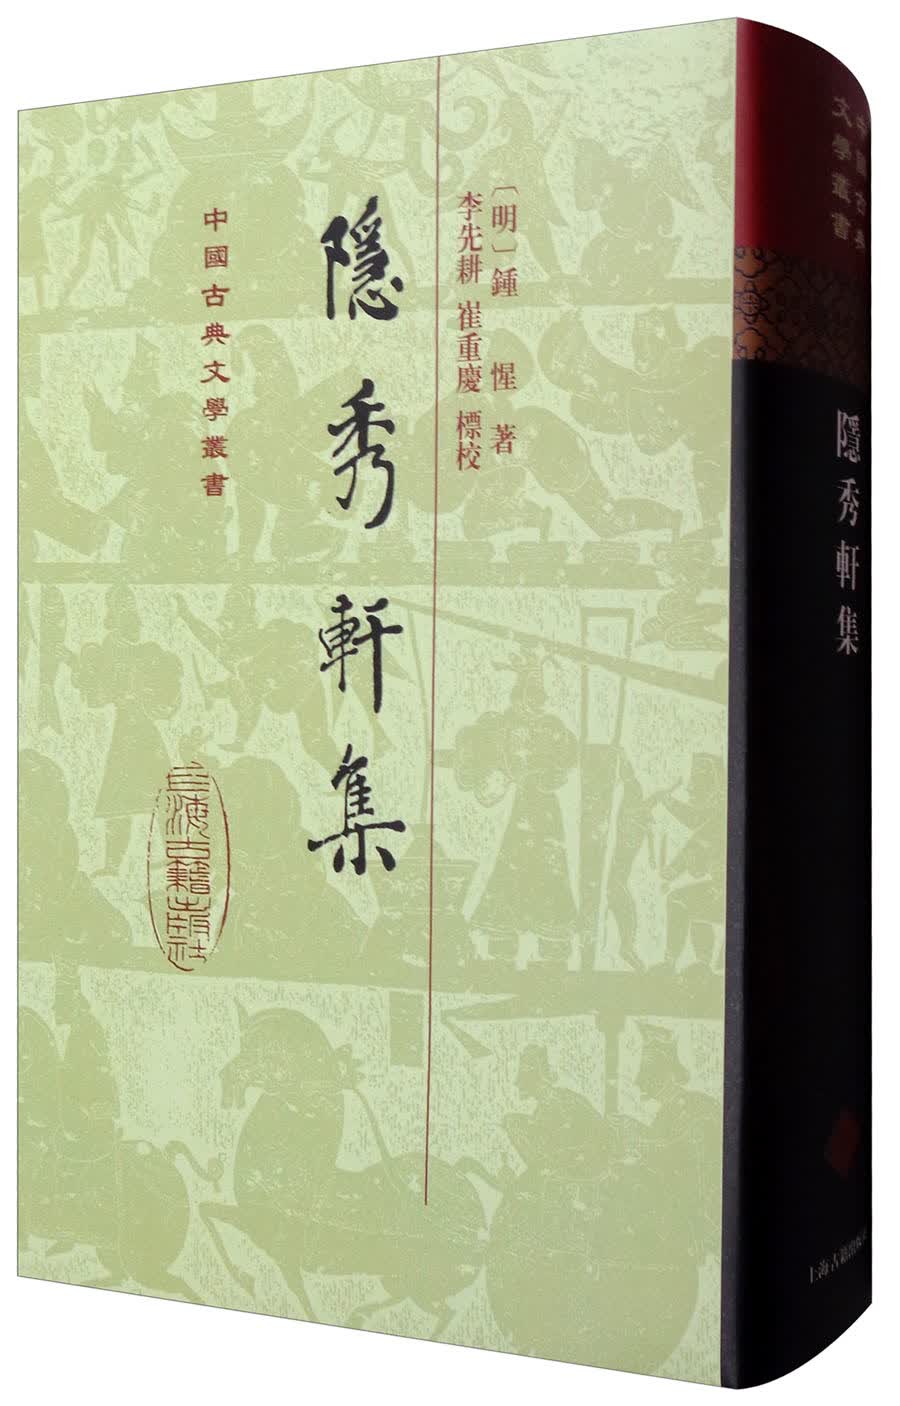 〔明〕鍾 惺 著
李先耕 崔重慶 標校
隱秀軒集
中國古典文學叢書
上海古籍出版社
中國古典
文學叢書
隱秀軒集
上海古籍出版社